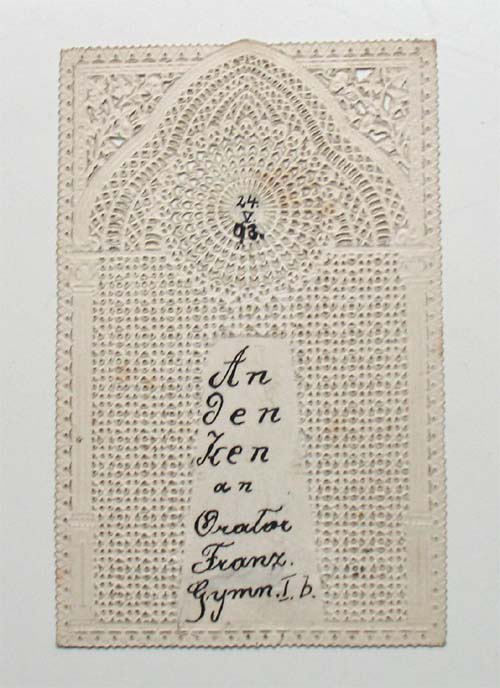 24.
V.
93.
An
den
ken
an
Orator
Franz.
Gymn. I. b.